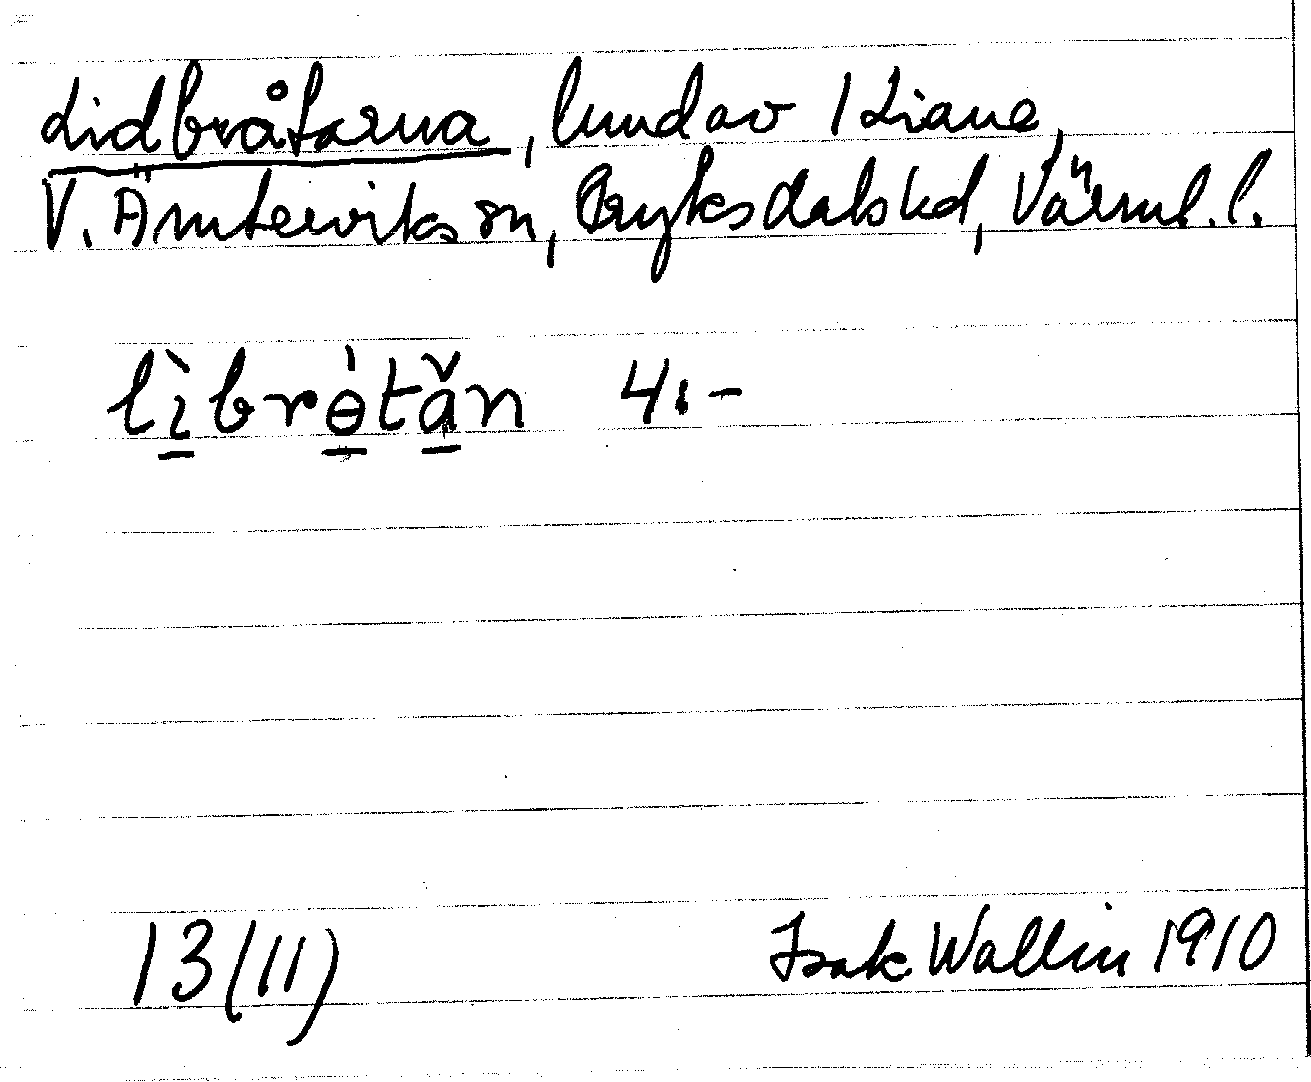 Lidbråtarna, lund av 1 Liane,
V. Ämterviks sn, Fryksdals hd, Värml. l.
lìbrɵ́tăn 4.-
13(11)
Isak Wallin 1910